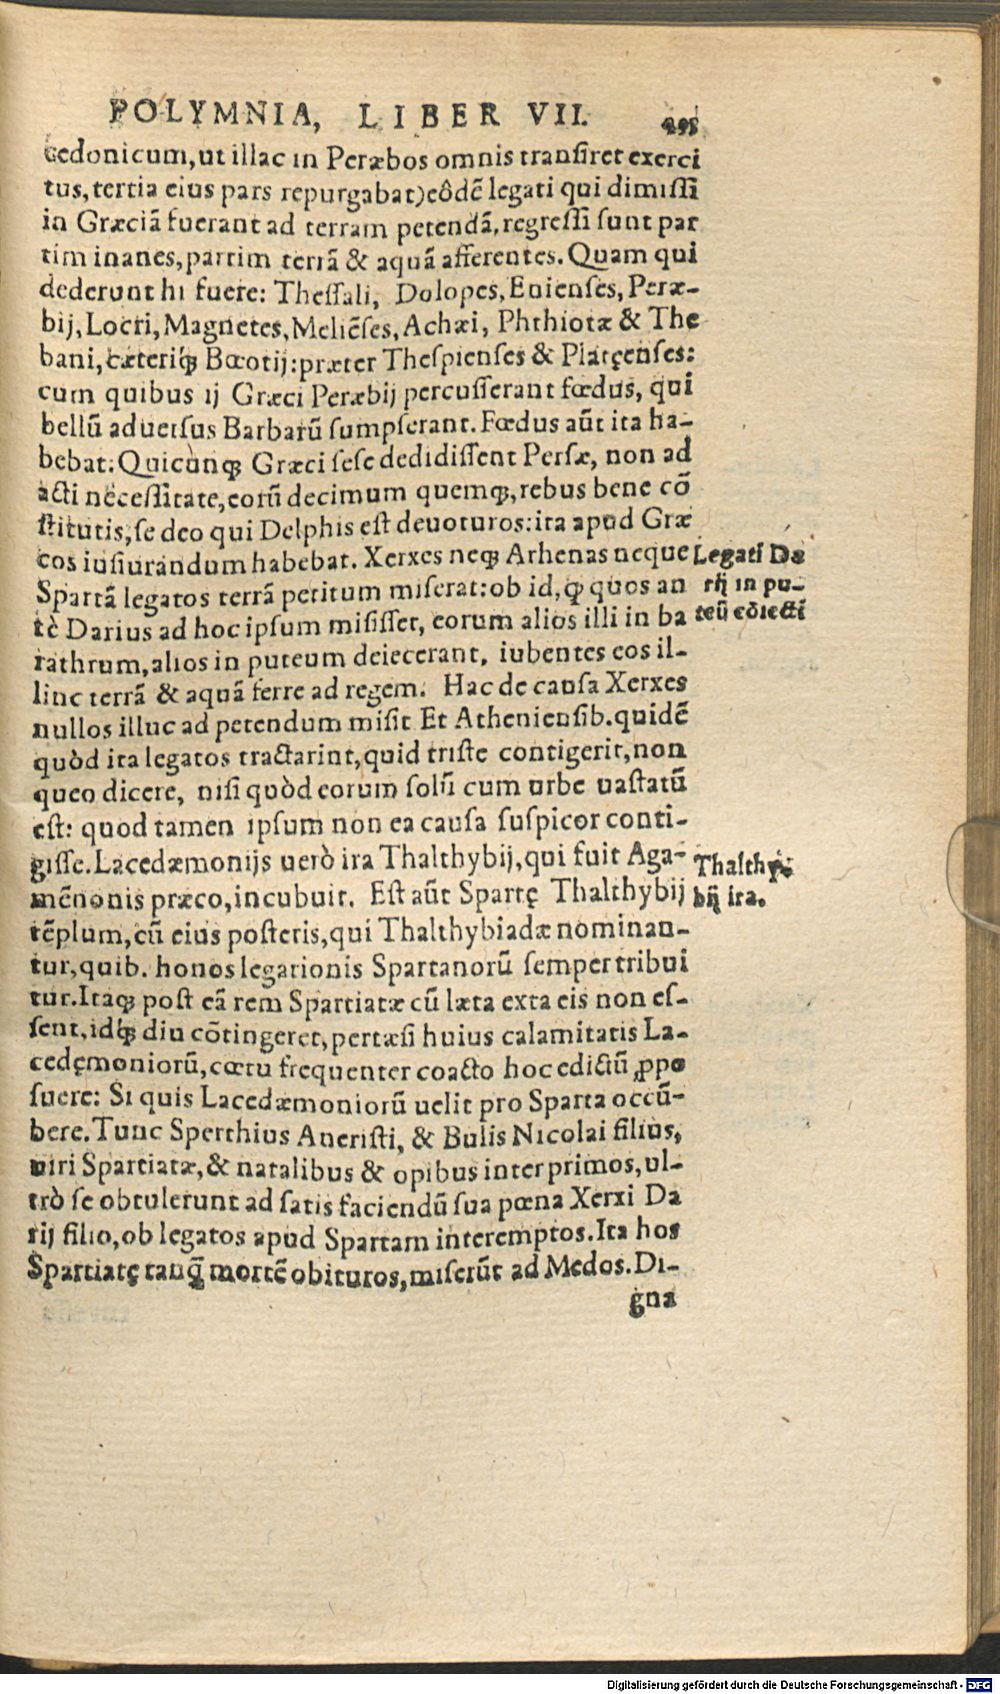 POLYMNIA, LIBER VII.
cedonicum, ut illac in Peræbos omnis transiret exerci
tus, tertia eius pars repurgabat) eôdẽ legati qui dimissi
in Græciã fuerant ad terram petendã, regressi sunt par
tim inanes, partim terrã & aquã afferentes. Quam qui
dederunt hi fuere: Thessali, Dolopes, Enienses, Peræ-
bij, Locri, Magnetes, Meliẽses, Achæi, Phthiotæ & The
bani, cæteriq; Bœotij: præter Thespienses & Platęenses:
cum quibus ij Græci Peræbij percusserant fœdus, qui
bellũ aduersus Barbarũ sumpserant. Fœdus aũt ita ha-
bebat: Quicũnq; Græci sese dedidissent Persæ, non ad
acti necessitate, eorũ decimum quemq;, rebus bene cõ
stitutis, se deo qui Delphis est deuoturos: ita apud Græ
cos iusiurandum habebat. Xerxes neq; Athenas neque
Legati Da
Spartã legatos terrã petitum miserat: ob id, ꝙ quos an
rij in pu-
tè Darius ad hoc ipsum misisset, eorum alios illi in ba
teũ cõiecti
rathrum, alios in puteum deiecerant, iubentes eos il-
linc terrã & aquã ferre ad regem. Hac de causa Xerxes
nullos illuc ad petendum misit Et Atheniensib. quidẽ
quòd ita legatos tractarint, quid triste contigerit, non
queo dicere, nisi quòd eorum solũ cum urbe uastatũ
est: quod tamen ipsum non ea causa suspicor conti-
gisse. Lacedæmonijs uerò ira Thalthybij, qui fuit Aga-
Thalthy-
mẽnonis præco, incubuit. Est aũt Spartę Thalthybij
bij ira.
tẽplum, cũ eius posteris, qui Thalthybiadæ nominan-
tur, quib. honos legationis Spartanorũ semper tribui
tur. Itaq; post eã rem Spartiatæ cũ læta exta eis non es-
sent, idq; diu cõtingeret, pertæsi huius calamitatis La-
cedęmoniorũ, cœtu frequenter coacto hoc edictũ ꝓpo
suere: Si quis Lacedæmoniorũ uelit pro Sparta occũ-
bere. Tunc Sperthius Aneristi, & Bulis Nicolai filius,
uiri Spartiatæ, & natalibus & opibus inter primos, ul-
trò se obtulerunt ad satis faciendũ sua pœna Xerxi Da
rij filio, ob legatos apud Spartam interemptos. Ita hos
Spartiatę tanq̃ mortẽ obituros, miserũt ad Medos. Di-
gna
Digitalisierung gefördert durch die Deutsche Forschungsgemeinschaft - DFG